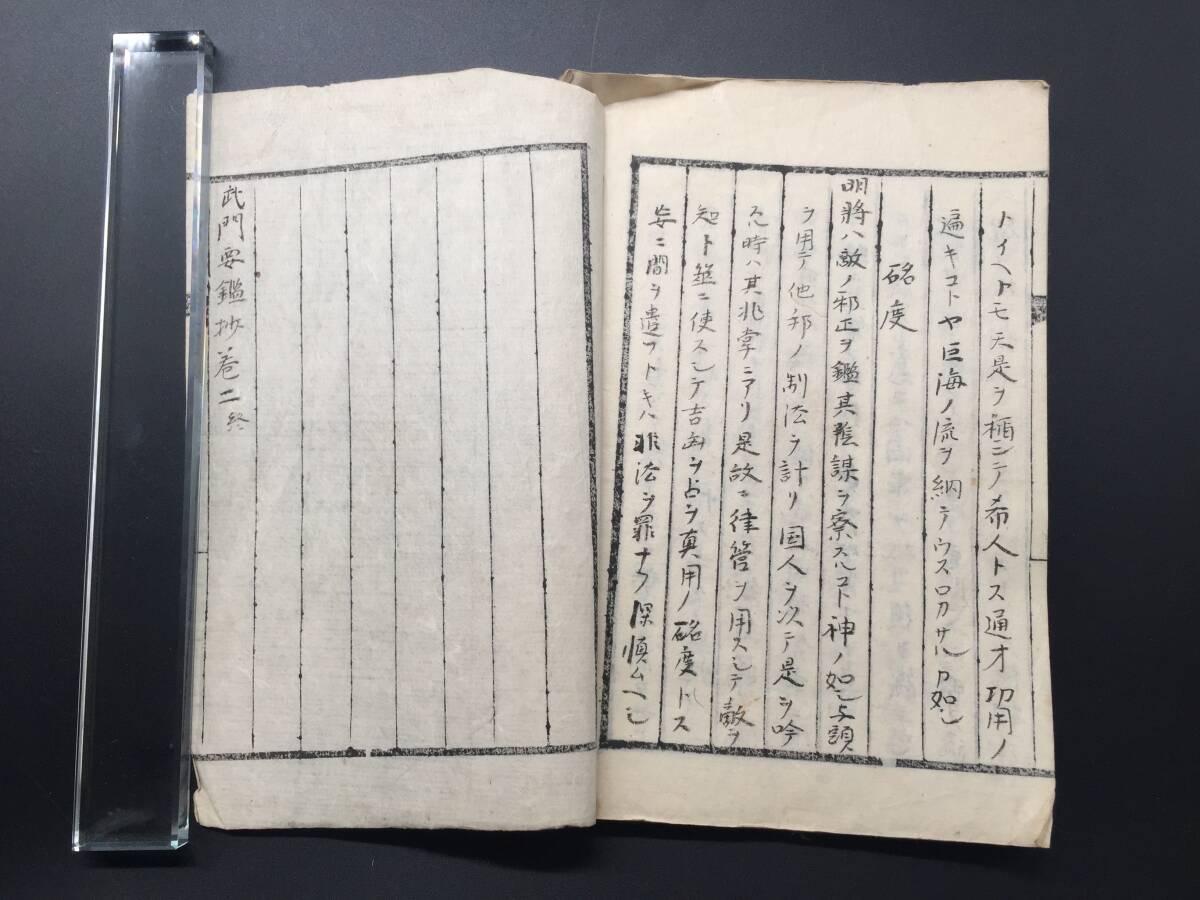 トイヘトモ天是ヲ稱シテ希人トス通才功用ノ
遍キコトヤ巨海ノ流ヲ納テウスロカサルカ如シ
硈度
明將ハ敵ノ邪正ヲ鑑其陰謀ヲ察スルコト神ノ如シ
ヲ用テ他邦ノ制法ヲ計リ国人ヲ以テ是ヲ吟
時ハ其兆掌ニアリ是故ニ律管ヲ用スシテ敵ヲ
知ト筮ニ使スシテ吉凶ヲ占ヲ真用ノ硈度トス
妄ニ間ヲ遣フトキハ非法ヲ罪ナフ深慎ムヘシ
武門要鑑抄巻二終